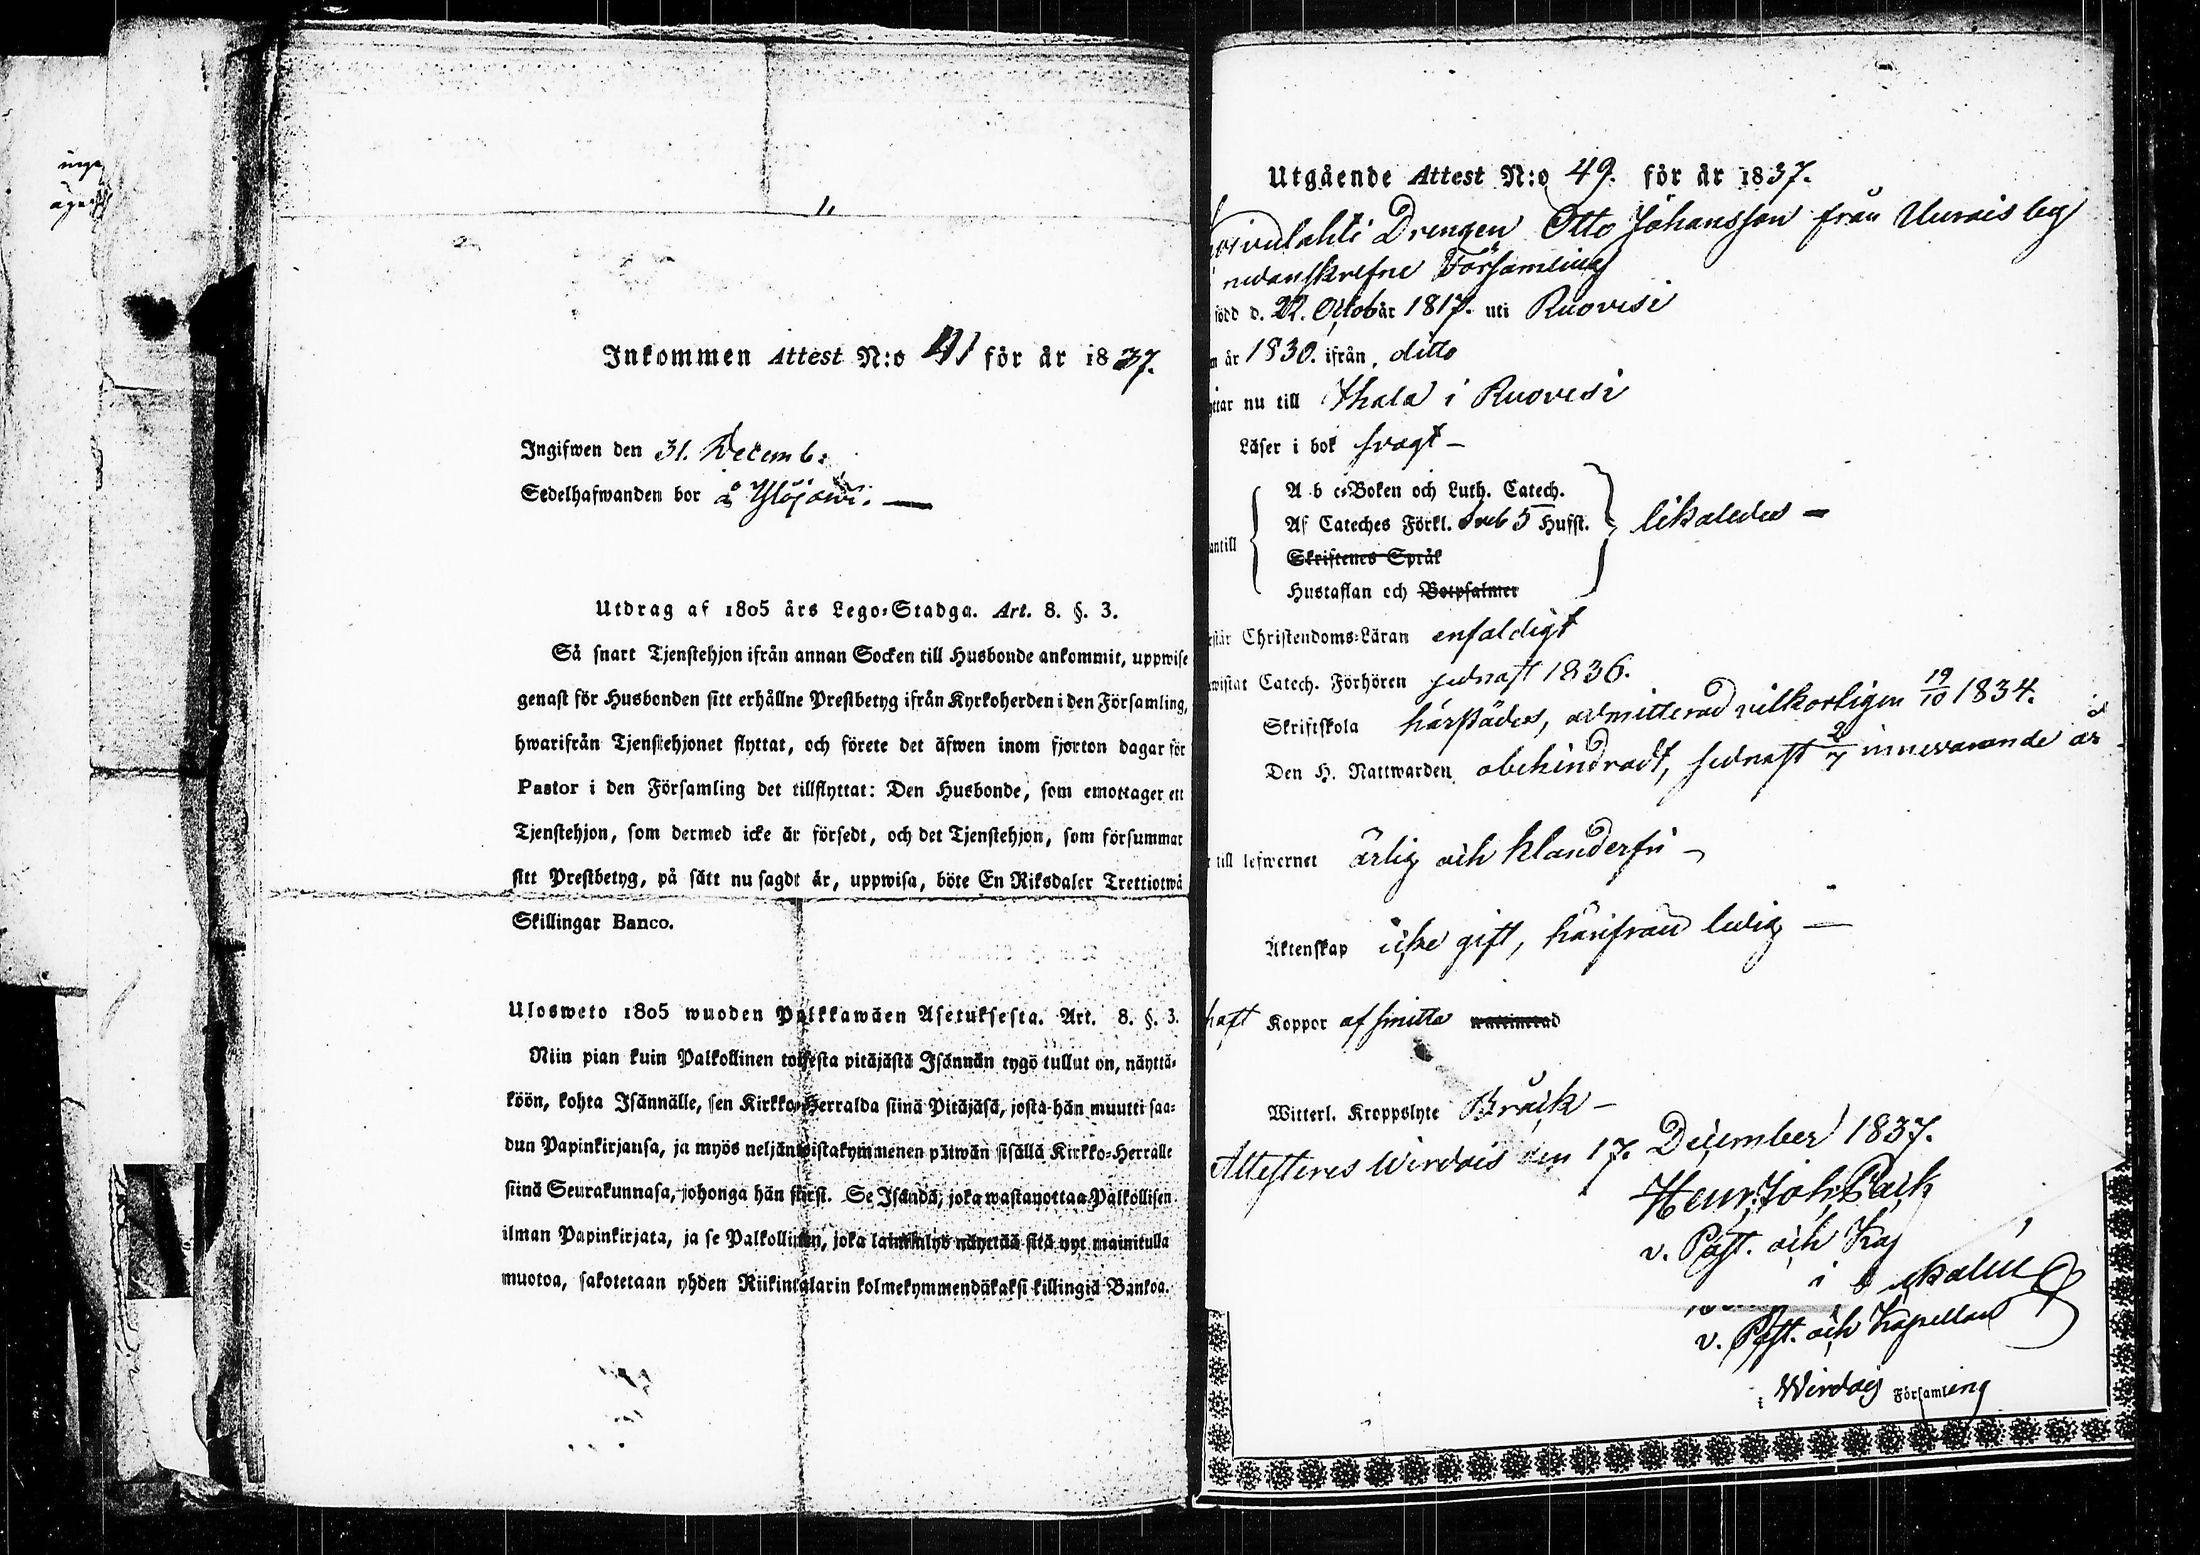 1,
Inkommen Attest N:o 41 för år 1837.
Ingifwen den 31. Decemb:
Sedelhafwanden bor å Ylöjärvi. —
Utdrag af 1805 års Lego-Stadga. Art. 8. §. 3.
Så snart Tjenstehjon ifrån annan Socken till Husbonde ankommit, uppwise
genast för Husbonden sitt erhållne Prestbetyg ifrån Kyrkoherden i den Församling,
hwarifrån Tjenstehjonet flyttat, och förete det äfwen inom fjorton dagar för
Pastor i den Församling det tillflyttat: Den Husbonde, som emottager ett
Tjenstehjon, som dermed icke är försedt, och det Tjenstehjon, som försummar
sitt Prestbetyg, på sätt nu sagdt är, uppwisa, böte En Riksdaler Trettiotwå
Skillingar Banco.
Ulosweto 1805 wuoden Palkkawäen Asetuksesta. Art. 8. §. 3.
Niin pian kuin Palkollinen toisesta pitäjästä Isännän tygö tullut on, näyttä-
köön, kohta Isännälle, sen Kirkko-Herralda siinä Pitäjäsä, josta hän muutti saa-
dun Papinkirjansa, ja myös neljäntoistakymmenen päiwän sisällä Kirkko-Herralle
siinä Seurakunnasa, johonga hän siirst. Se Isändä, joka wastanottaa Palkollisen
ilman Papinkirjata, ja se Palkollinen, joka laiminlyö näyttää sitä nyt mainitulla
muotoa, sakotetaan yhden Riikintalarin kolmekymmendäkaksi killingiä Bankoa.
Utgående Attest N:o 49. för år 1837.
Drengen Otto Johansson från
nedanskrefne Församling
född d. 22. October 1817. uti Ruovesi
år 1830. ifrån ditto
nu till Ihala i Ruovesi
Läser i bok svagt —
A b c-Boken och Luth. Catech.
Af Cateches Förkl. 5 Hufst. likaledes —
Skriftenes Språk
Hustaflan och Botpsalmer
Christendoms-Läran enfaldigt
Catech. Förhören sednast 1836.
Skriftskola härstädes, admitterad vilkorligen 19/10 1834.
Den H. Nattwarden obehindradt, sednast 2/7 innevarande år
till lefwernet ärlig och klanderfri —
Äktenskap icke gift, härifrån ledig —
haft Koppor af smitta waccinerad
Witterl. Kroppslyte Bråck —
Attesteres Wirdois den 17. December 1837.
Henr. Joh.
v. Past. och
i
v. Past. och Kapellan
i Wirdois Församling